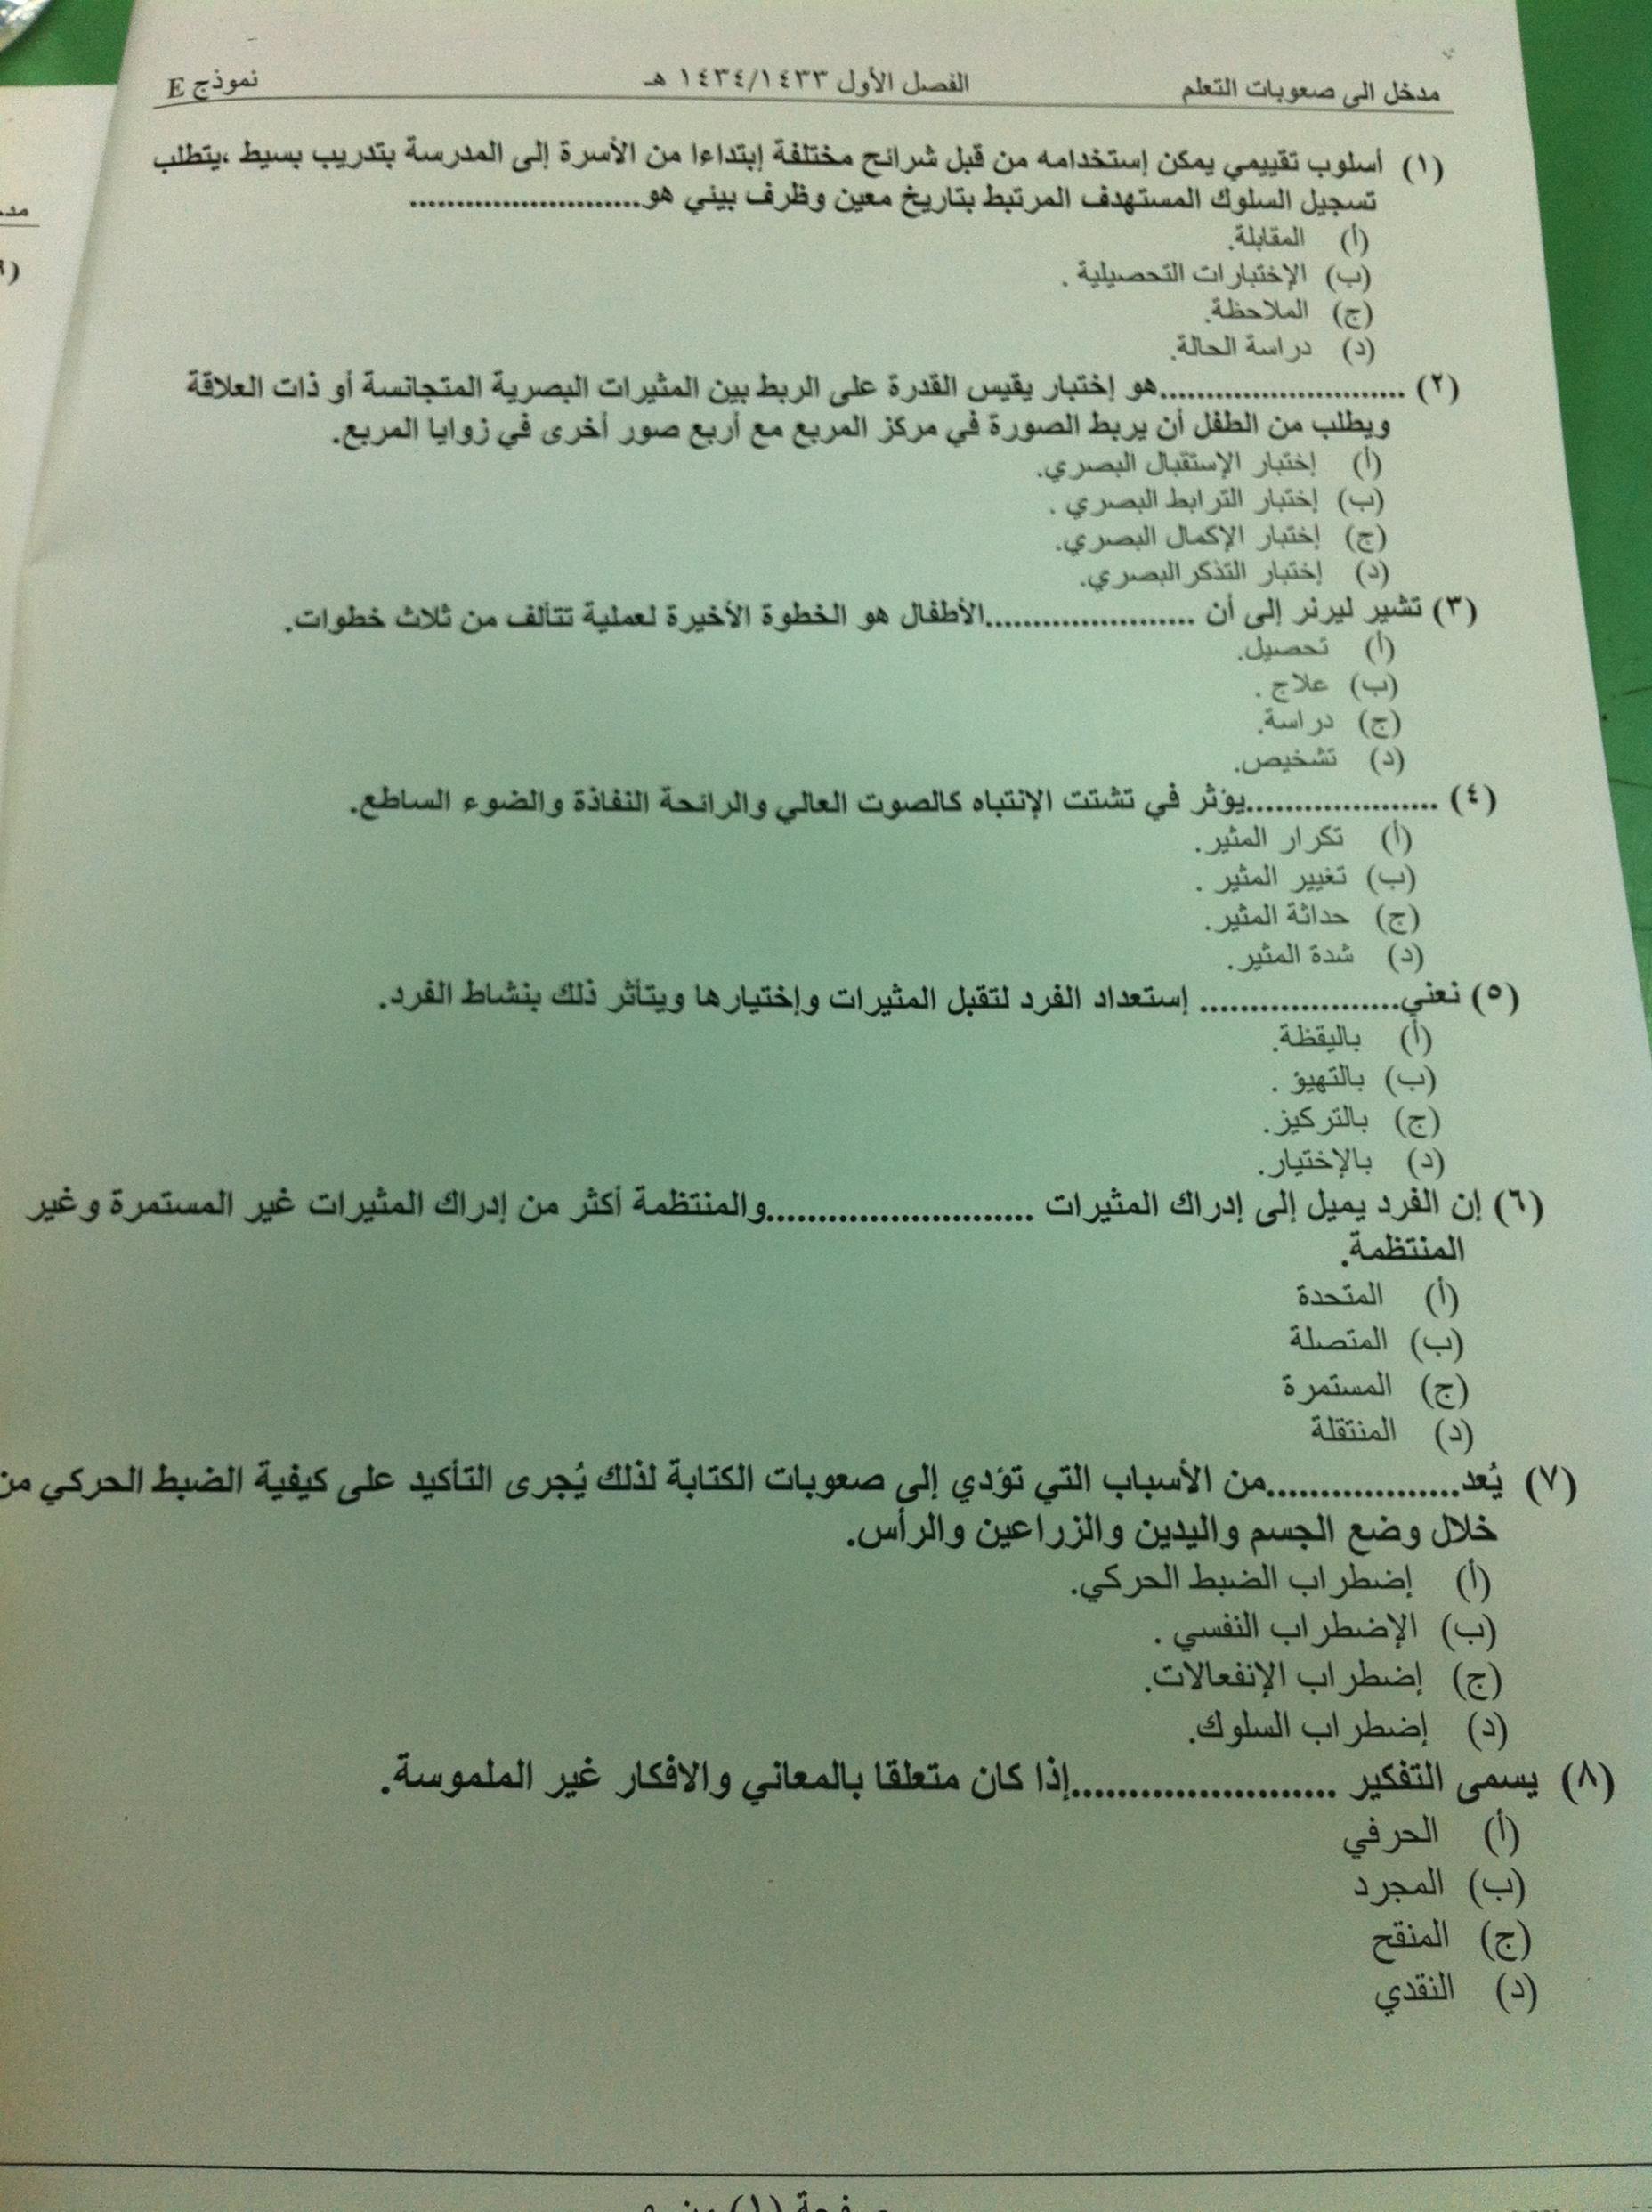 مدخل الى صعوبات التعلم الفصل الأول ١٤٣٤/١٤٣٣ هـ نموذج E
(١) أسلوب تقييمي يمكن إستخدامه من قبل شرائح مختلفة إبتداءا من الأسرة إلى المدرسة بتدريب بسيط ،يتطلب
تسجيل السلوك المستهدف المرتبط بتاريخ معين وظرف بيئي هو.........................
(أ) المقابلة.
(ب) الإختبارات التحصيلية .
(ج) الملاحظة.
(د) دراسة الحالة.
(٢) ..........................هو إختبار يقيس القدرة على الربط بين المثيرات البصرية المتجانسة أو ذات العلاقة
ويطلب من الطفل أن يربط الصورة في مركز المربع مع أربع صور أخرى في زوايا المربع.
(أ) إختبار الإستقبال البصري.
(ب) إختبار الترابط البصري .
(ج) إختبار الإكمال البصري.
(د) إختبار التذكر البصري.
(٣) تشير ليرنر إلى أن ......................الأطفال هو الخطوة الأخيرة لعملية تتألف من ثلاث خطوات.
(أ) تحصيل.
(ب) علاج .
(ج) دراسة.
(د) تشخيص.
(٤) ....................يؤثر في تشتت الإنتباه كالصوت العالي والرائحة النفاذة والضوء الساطع.
(أ) تكرار المثير.
(ب) تغيير المثير .
(ج) حداثة المثير.
(د) شدة المثير.
(٥) نعني.................... إستعداد الفرد لتقبل المثيرات وإختيارها ويتأثر ذلك بنشاط الفرد.
(أ) باليقظة.
(ب) بالتهيؤ .
(ج) بالتركيز.
(د) بالإختيار.
(٦) إن الفرد يميل إلى إدراك المثيرات ..........................والمنتظمة أكثر من إدراك المثيرات غير المستمرة وغير
المنتظمة.
(أ) المتحدة
(ب) المتصلة
(ج) المستمرة
(د) المنتقلة
(٧) يُعد...................من الأسباب التي تؤدي إلى صعوبات الكتابة لذلك يُجرى التأكيد على كيفية الضبط الحركي من
خلال وضع الجسم واليدين والزراعين والرأس.
(أ) إضطراب الضبط الحركي.
(ب) الإضطراب النفسي .
(ج) إضطراب الإنفعالات.
(د) إضطراب السلوك.
(٨) يسمى التفكير ........................إذا كان متعلقا بالمعاني والافكار غير الملموسة.
(أ) الحرفي
(ب) المجرد
(ج) المنقح
(د) النقدي